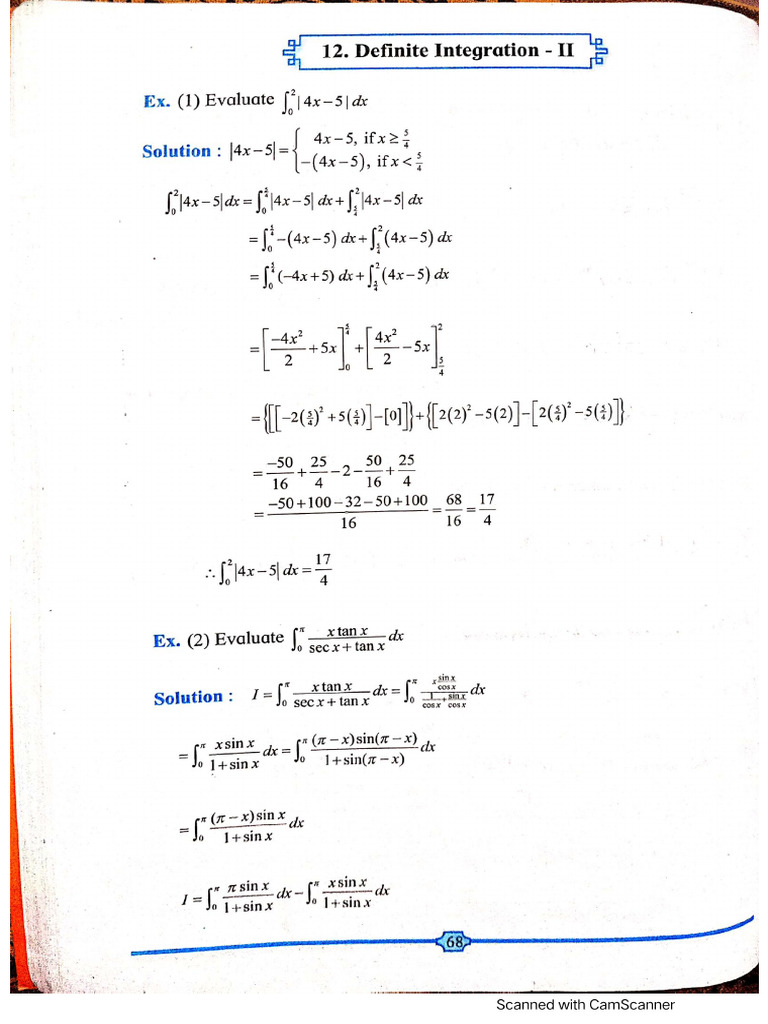 12. Definite Integration - II
Ex. (1) Evaluate ∫₀² |4x−5| dx
Solution : |4x−5| = { 4x−5, if x ≥ 5/4
−(4x−5), if x < 5/4
∫₀² |4x−5| dx = ∫₀^(5/4) |4x−5| dx + ∫_(5/4)² |4x−5| dx
= ∫₀^(5/4) −(4x−5) dx + ∫_(5/4)² (4x−5) dx
= ∫₀^(5/4) (−4x+5) dx + ∫_(5/4)² (4x−5) dx
= [−4x²/2 + 5x]₀^(5/4) + [4x²/2 − 5x]_(5/4)²
= {[[−2(5/4)² + 5(5/4)] − [0]]} + {[2(2)² − 5(2)] − [2(5/4)² − 5(5/4)]}
= −50/16 + 25/4 − 2 − 50/16 + 25/4
= (−50+100−32−50+100)/16 = 68/16 = 17/4
∴ ∫₀² |4x−5| dx = 17/4
Ex. (2) Evaluate ∫₀^π (x tan x)/(sec x + tan x) dx
Solution : I = ∫₀^π (x tan x)/(sec x + tan x) dx = ∫₀^π (x (sin x/cos x))/((1/cos x) + (sin x/cos x)) dx
= ∫₀^π (x sin x)/(1+sin x) dx = ∫₀^π ((π−x) sin(π−x))/(1+sin(π−x)) dx
= ∫₀^π ((π−x) sin x)/(1+sin x) dx
I = ∫₀^π (π sin x)/(1+sin x) dx − ∫₀^π (x sin x)/(1+sin x) dx
68
Scanned with CamScanner